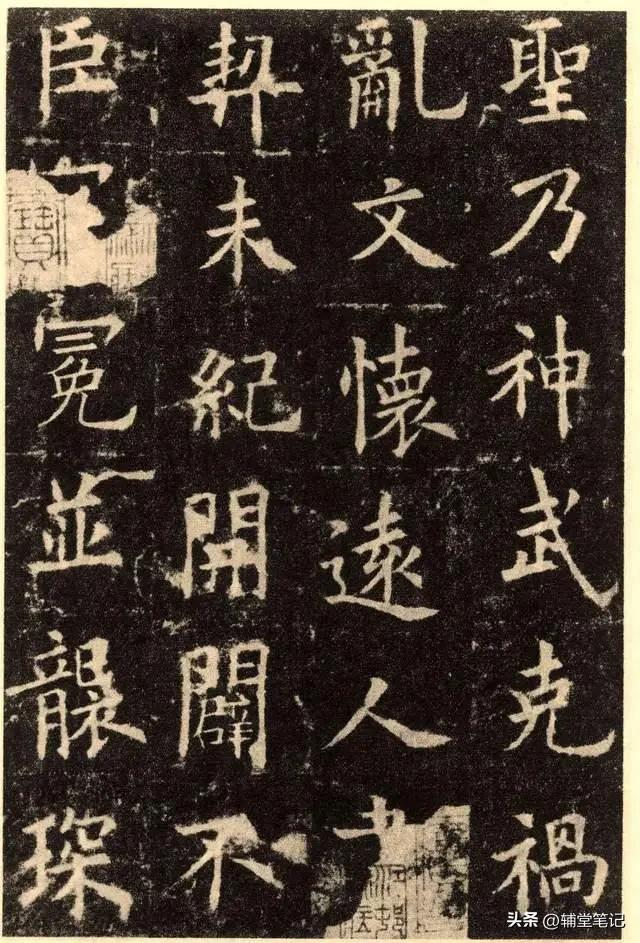 聖乃神武克禍
亂文懷遠人
契未紀開闢不
臣冕並襲琛
头条 @辅堂笔记